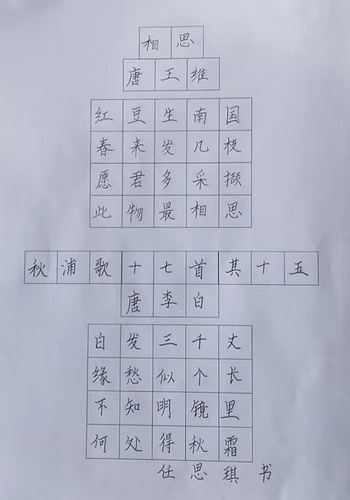 相思
唐王维
红豆生南国
春来发几枝
愿君多采撷
此物最相思
秋浦歌十七首其十五
唐李白
白发三千丈
缘愁似个长
不知明镜里
何处得秋霜
仕思琪书